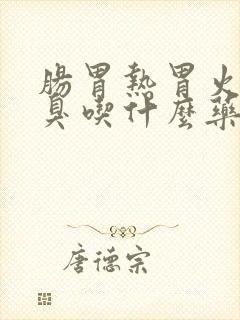 腸胃熱胃火
臭喫什麼藥
唐德宗